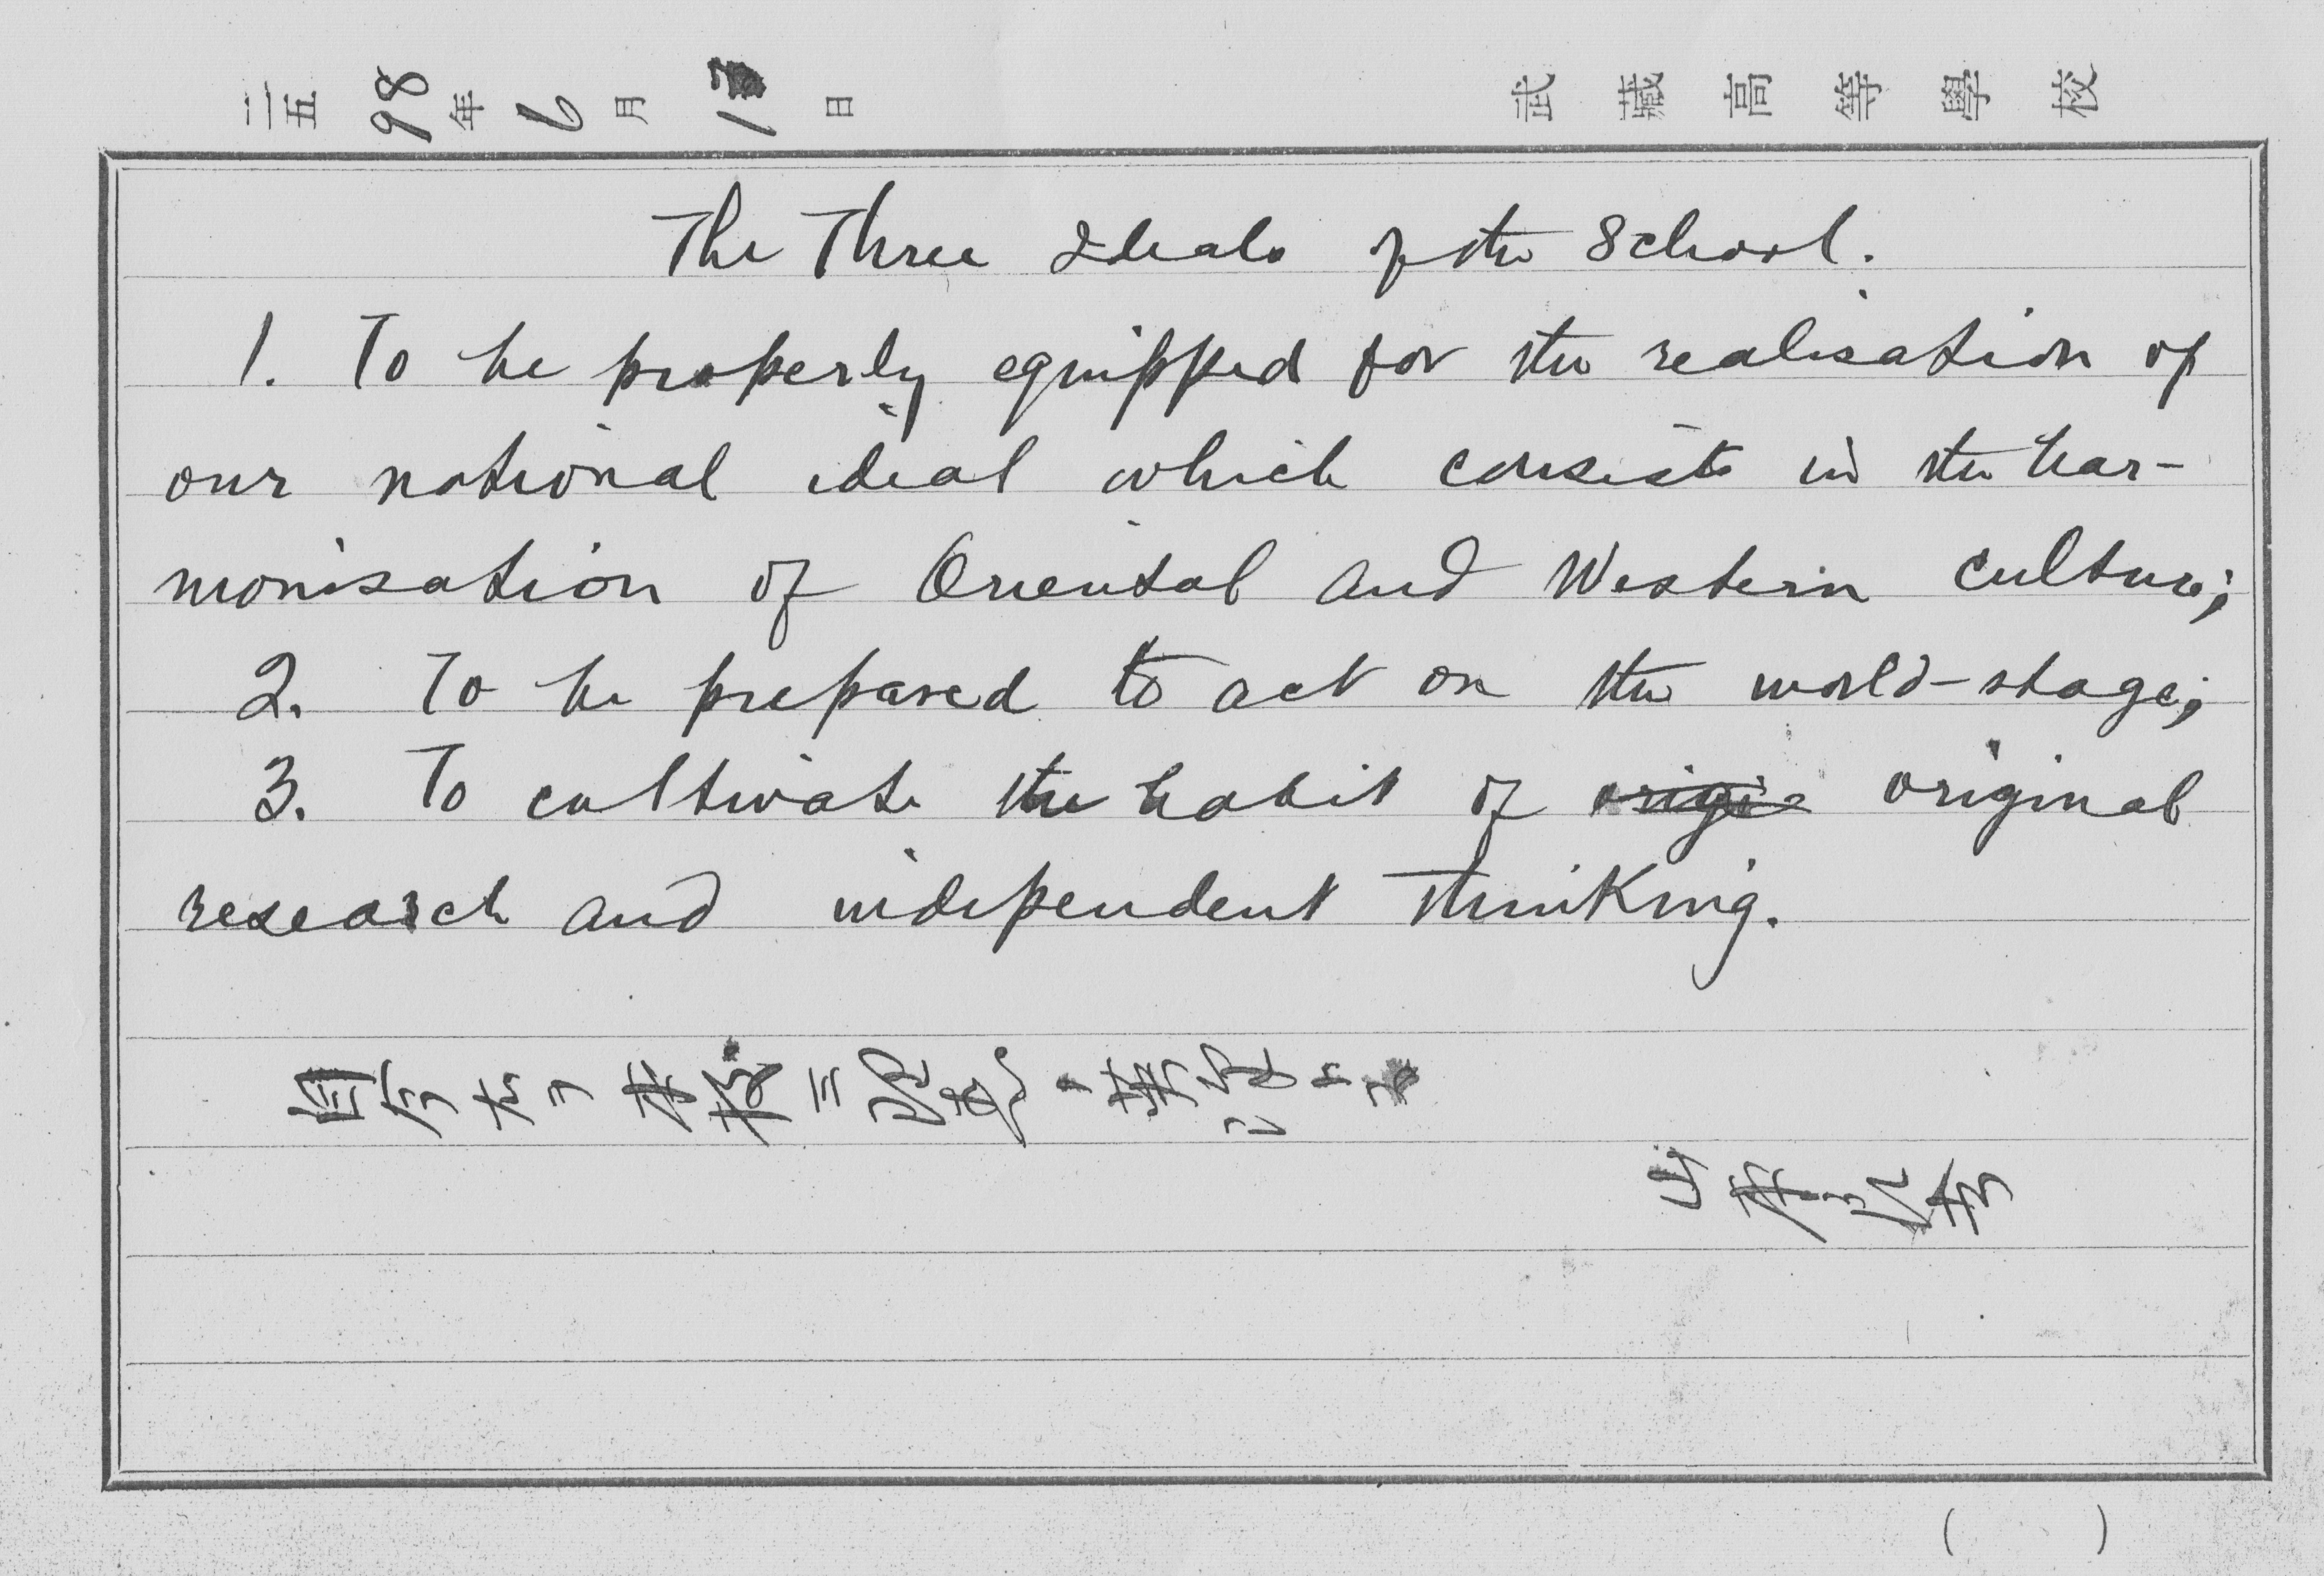 二五98年6月1日
武藏高等學校
The Three Ideals of the School.
1. To be properly equipped for the realisation of
our national ideal which consists in the har-
monisation of Oriental and Western culture;
2. To be prepared to act on the world-stage;
3. To cultivate the habit of origi original
research and independent thinking.
( )